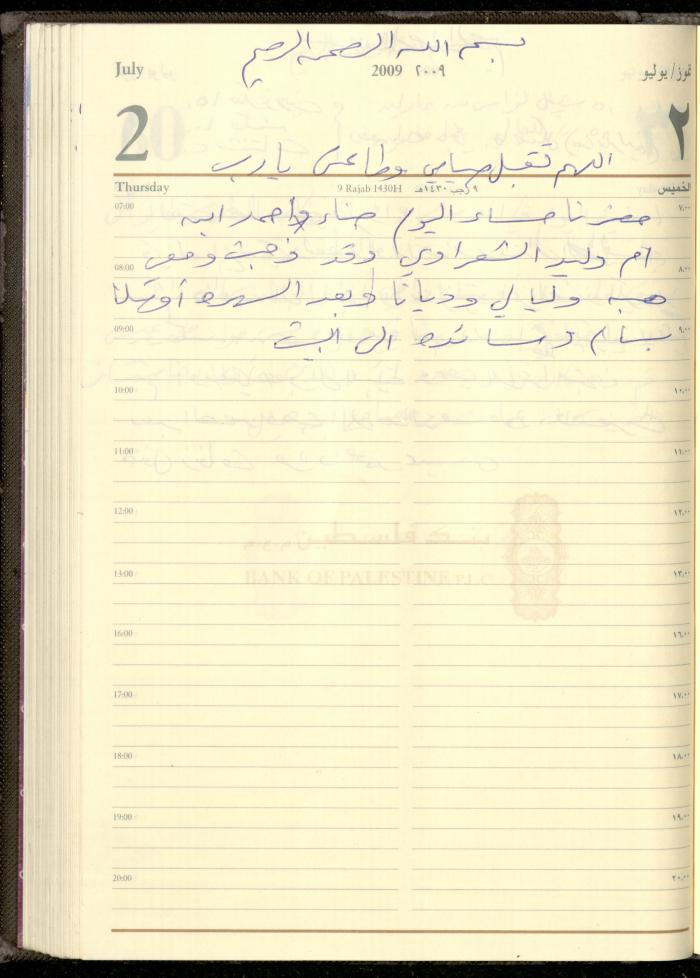 بسم الله الرحمن الرحيم
July
2009 ٢٠٠٩
تموز/يوليو
2
٢
اللهم تقبل صيامي وطاعتي يا رب
Thursday
9 Rajab 1430H
٩ رجب ١٤٣٠هـ
الخميس
07:00 ٧.٠٠
حضرنا مساء اليوم حناء واحمد ابنه
ام وليد الشعراوي وقد ذهبت ومعي
08:00 ٨.٠٠
هبه وليالي وديانا وبعد السهره أوصلنا
09:00 ٩.٠٠
بسام وسانده الى البيت
10:00 ١٠.٠٠
11:00 ١١.٠٠
12:00 ١٢.٠٠
بنك فلسطين
BANK OF PALESTINE P.L.C
13:00 ١٣.٠٠
16:00 ١٦.٠٠
17:00 ١٧.٠٠
18:00 ١٨.٠٠
19:00 ١٩.٠٠
20:00 ٢٠.٠٠